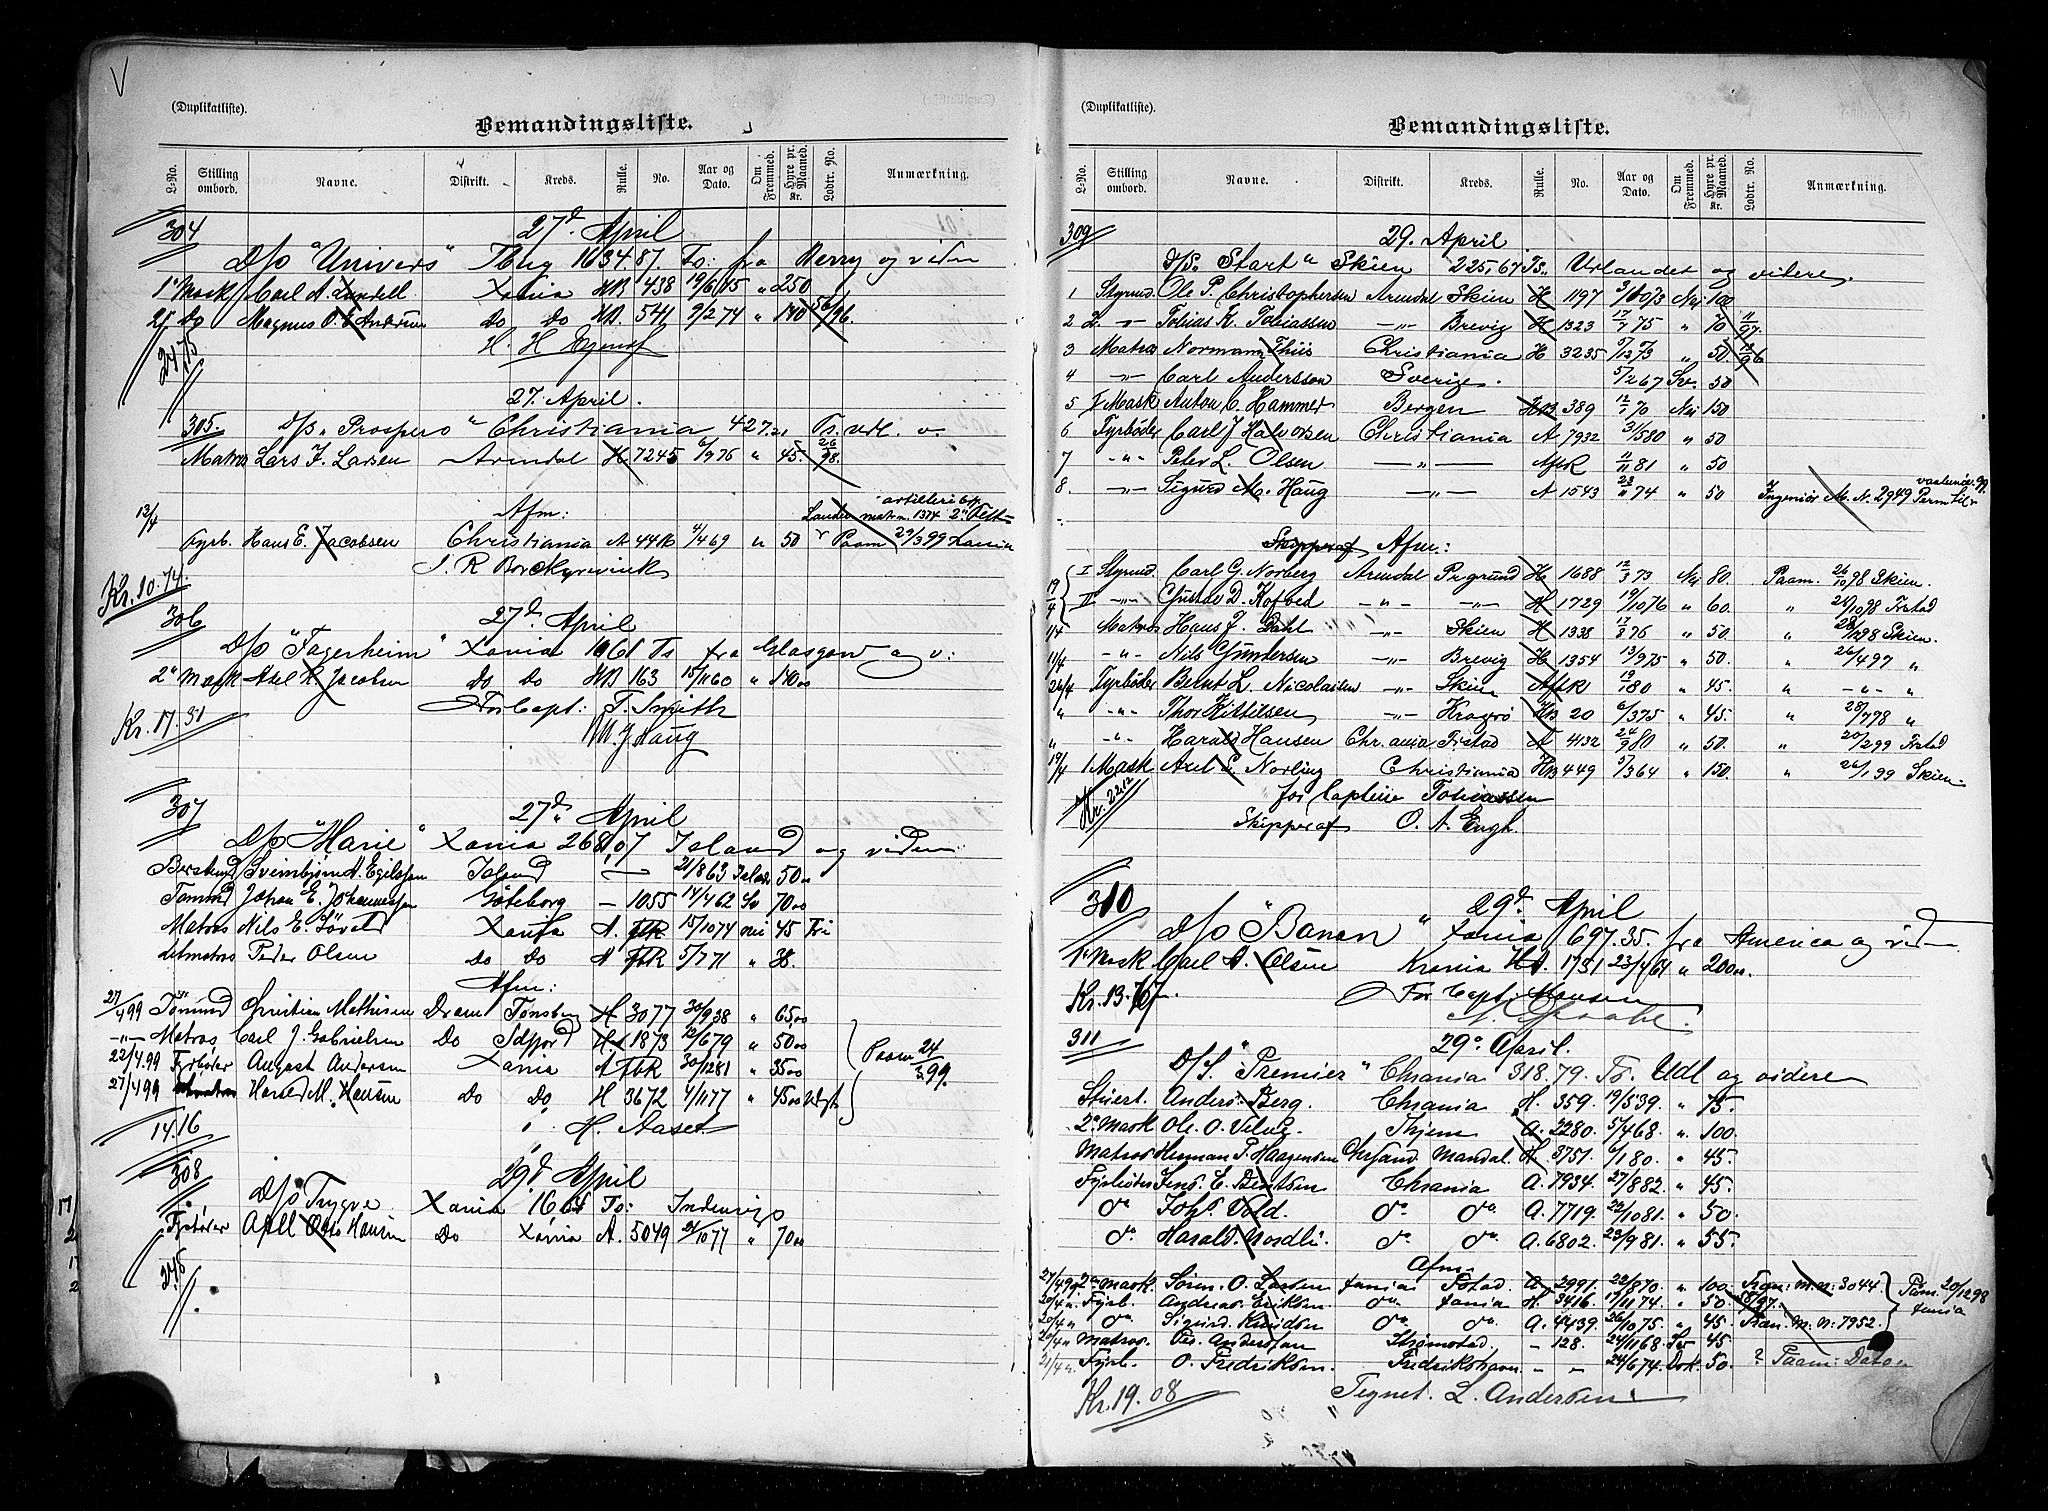 V
(Duplikatliste).
Bemandingsliste.
L-No. Stilling ombord. Navne. Distrikt. Kreds. Rulle. No. Aar og Dato. Om Fremmed. Hyre pr. Maaned. Kr. Lodtr. No. Anmærkning.
304 27d April
D/S "Univers" Tbrg 1634.87 Ts: fra Berry og viden
1e Mask Carl A. Lundell Xania HB 438 19/6 65 " 250
2e Do Magnus O. E Andersen Do Do HB. 541 9/2 74 " 140 56/96
24.75
27. April.
305. D/S "Prospero" Christiania 427.21 Ts. udl. v.
Matros Lars J. Larsen Arendal H 7245 6/9 76 " 45. 26/98.
Afm:
13/4 Fyrb. Hans E. Jacobsen Christiania A 448 4/4 69 " 50 Paam 29/3 99 Xania
Kr. 10.74.
306 27d April
D/S "Fagerheim" Xania 1061 Ts fra Glasgow og v:
2e Mask Axel H. Jacobsen Do Do HB 163 15/11 60 " 140.00
Kr. 17.31 For Capt: T. Smith
M. J. Haug
307 27d April
D/S "Marie" Xania 268.07 Island og viden
Island 21/8 63 Island 50.00
Tømmd Johan E. Johannesen Göteborg – 1055 14/4 62 Sv 70.00
Matros Nils E. Xania A. 15/10 74 Nei 45 Fri
Letmatros Peder Olsen Do Do A 5/7 71 " 38.
Afm:
27/4 99 Tømmd Christian Mathisen Dram Tønsberg H 3077 30/9 38 " 65.00
–"– Matros Carl J. Gabrielsen Do Sdfjord H 1873 12/6 79 " 50.00
22/4.99 Fyrbøter August Andersen Xania A 30/12 81 " 35.00 Paam 24/3 99.
27/4 99 Harald M. Hansen Do Do H 3672 4/11 77 " 45.00
14.16 H. Aasen
308 29d April
D/S Trygve Xania 16 Ts: Indenrigs
Fyrbøter Axell Otto Hansen Do Xania A. 5049 21/10 77 " 70.00
2.75
(Duplikatliste).
Bemandingsliste.
L-No. Stilling ombord. Navne. Distrikt. Kreds. Rulle. No. Aar og Dato. Om Fremmed. Hyre pr. Maaned. Kr. Lodtr. No. Anmærkning.
309 29. April
D/S. "Start" Skien 225,67 Ts. Urlandet og videre.
1 Styrmd. Ole P. Christophersen Arendal Skien H 1197 3/10 73 Nei 100
2 2. –"– Tobias K. Tobiassen –"– Brevig H 1323 17/7 75 " 70 11/97.
3 Matros Normann Thiis Christiania H 3235 5/12 73 " 50. 12/96
4 –"– Carl Andersson Sverige. 5/2 67 Sv. 50
5 1 Mask Anton C. Hammer Bergen HB 389 12/1 70 Nei 150
6 Fyrbøder Carl J Halvorsen Christiania A 7932 31/5 80 " 50
7 –"– Peter L. Olsen –"– AfbR 11/11 81 " 50
8. –"– Sigurd M. Haug –"– A 1543 23/11 74 " 50 Ingeniør M. N. 2949
Skipperaf Afm:
19/4 I Styrmd. Carl G. Norberg Arendal Prgrund H 1688 12/3 73 Nei 80. Paam. 26/10 98 Skien.
II –"– Gustav D. Kofoed –"– –"– H 1729 19/10 76 " 60. " 28/10 98 Frstad
1/4 Matros Hans J. Dahl –"– Skien H 1338 17/8 76 " 50. " Skien.
11/4 –"– Nils Gundersen –"– Brevig H 1354 13/9 75 " 50. " 26/4 97 "
26/4 Fyrbøder Bernt L. Nicolaisen –"– Skien AfbR 19/1 80 " 45. " –"– "
" –"– Thor Kittilsen –"– Kragerø HB 20 6/3 75 " 45. " 28/7 98 "
" –"– Harald Hansen Chr.ania Frstad A 4132 24/9 80 " 50. " 20/2 99 Frstad
19/4 1 Mask Axel E. Norling Christiania HB 449 5/3 64 " 150. " 26/1 99 Skien.
Kr. 22.12 for Capteie Tobiassen
Skipperaf O. A. Engh.
310 29d. April
D/S "Banan" Xania 697.35. fra America og viden
1e Mask Carl A. Olsen Krania HB. 1731 23/4 61 " 200.00
Kr. 13.76. For Capt: Hansen
311 29. April.
D/S. "Premier" Chrania 318.79. Ts. Udl og videre
Stuert. Anders Berg. Chrania H. 359. 19/5 39. " 75.
2. Mask Ole. O. Skjem A. 2280. 5/4 68. " 100.
Matros Herman P. Haagensen Chrsand. Mandal. H. 3751. 6/1 80. " 45.
Fyrbøter Jens. E. Berntsen Chrania A. 7934. 27/8 82. " 45.
do Johs. Vold. do do A. 7719. 22/10 81. " 50.
do Harald. Nordli. do do A. 6802. 23/9 81. " 55.
Afm.
27/4 99 2. Mask. Søren. O. Larsen Xania Frstad A 2991. 22/8 70. " 100. Fram. m. n: 3044 Paam. 20/12 98 Xania
20/4 " Fyrb. Andreas. Eriksen. do Xania H. 3416. 17/11 74. " 50. 58/97.
20/4 " do Sigurd. Knudsen do do A. 4439. 26/10 75. " 45. Fram. m. n: 7952.
20/4 " Matros. Andersson Strømstad. – 128. 24/11 68. Sv 45
21/4 " Fyrb. O. Fredriksen. Fredrikshavn – – 24/6 74. Dsk. 50. ? Paam: Dato
Kr. 19.08 Tegnet. L. Andersen.